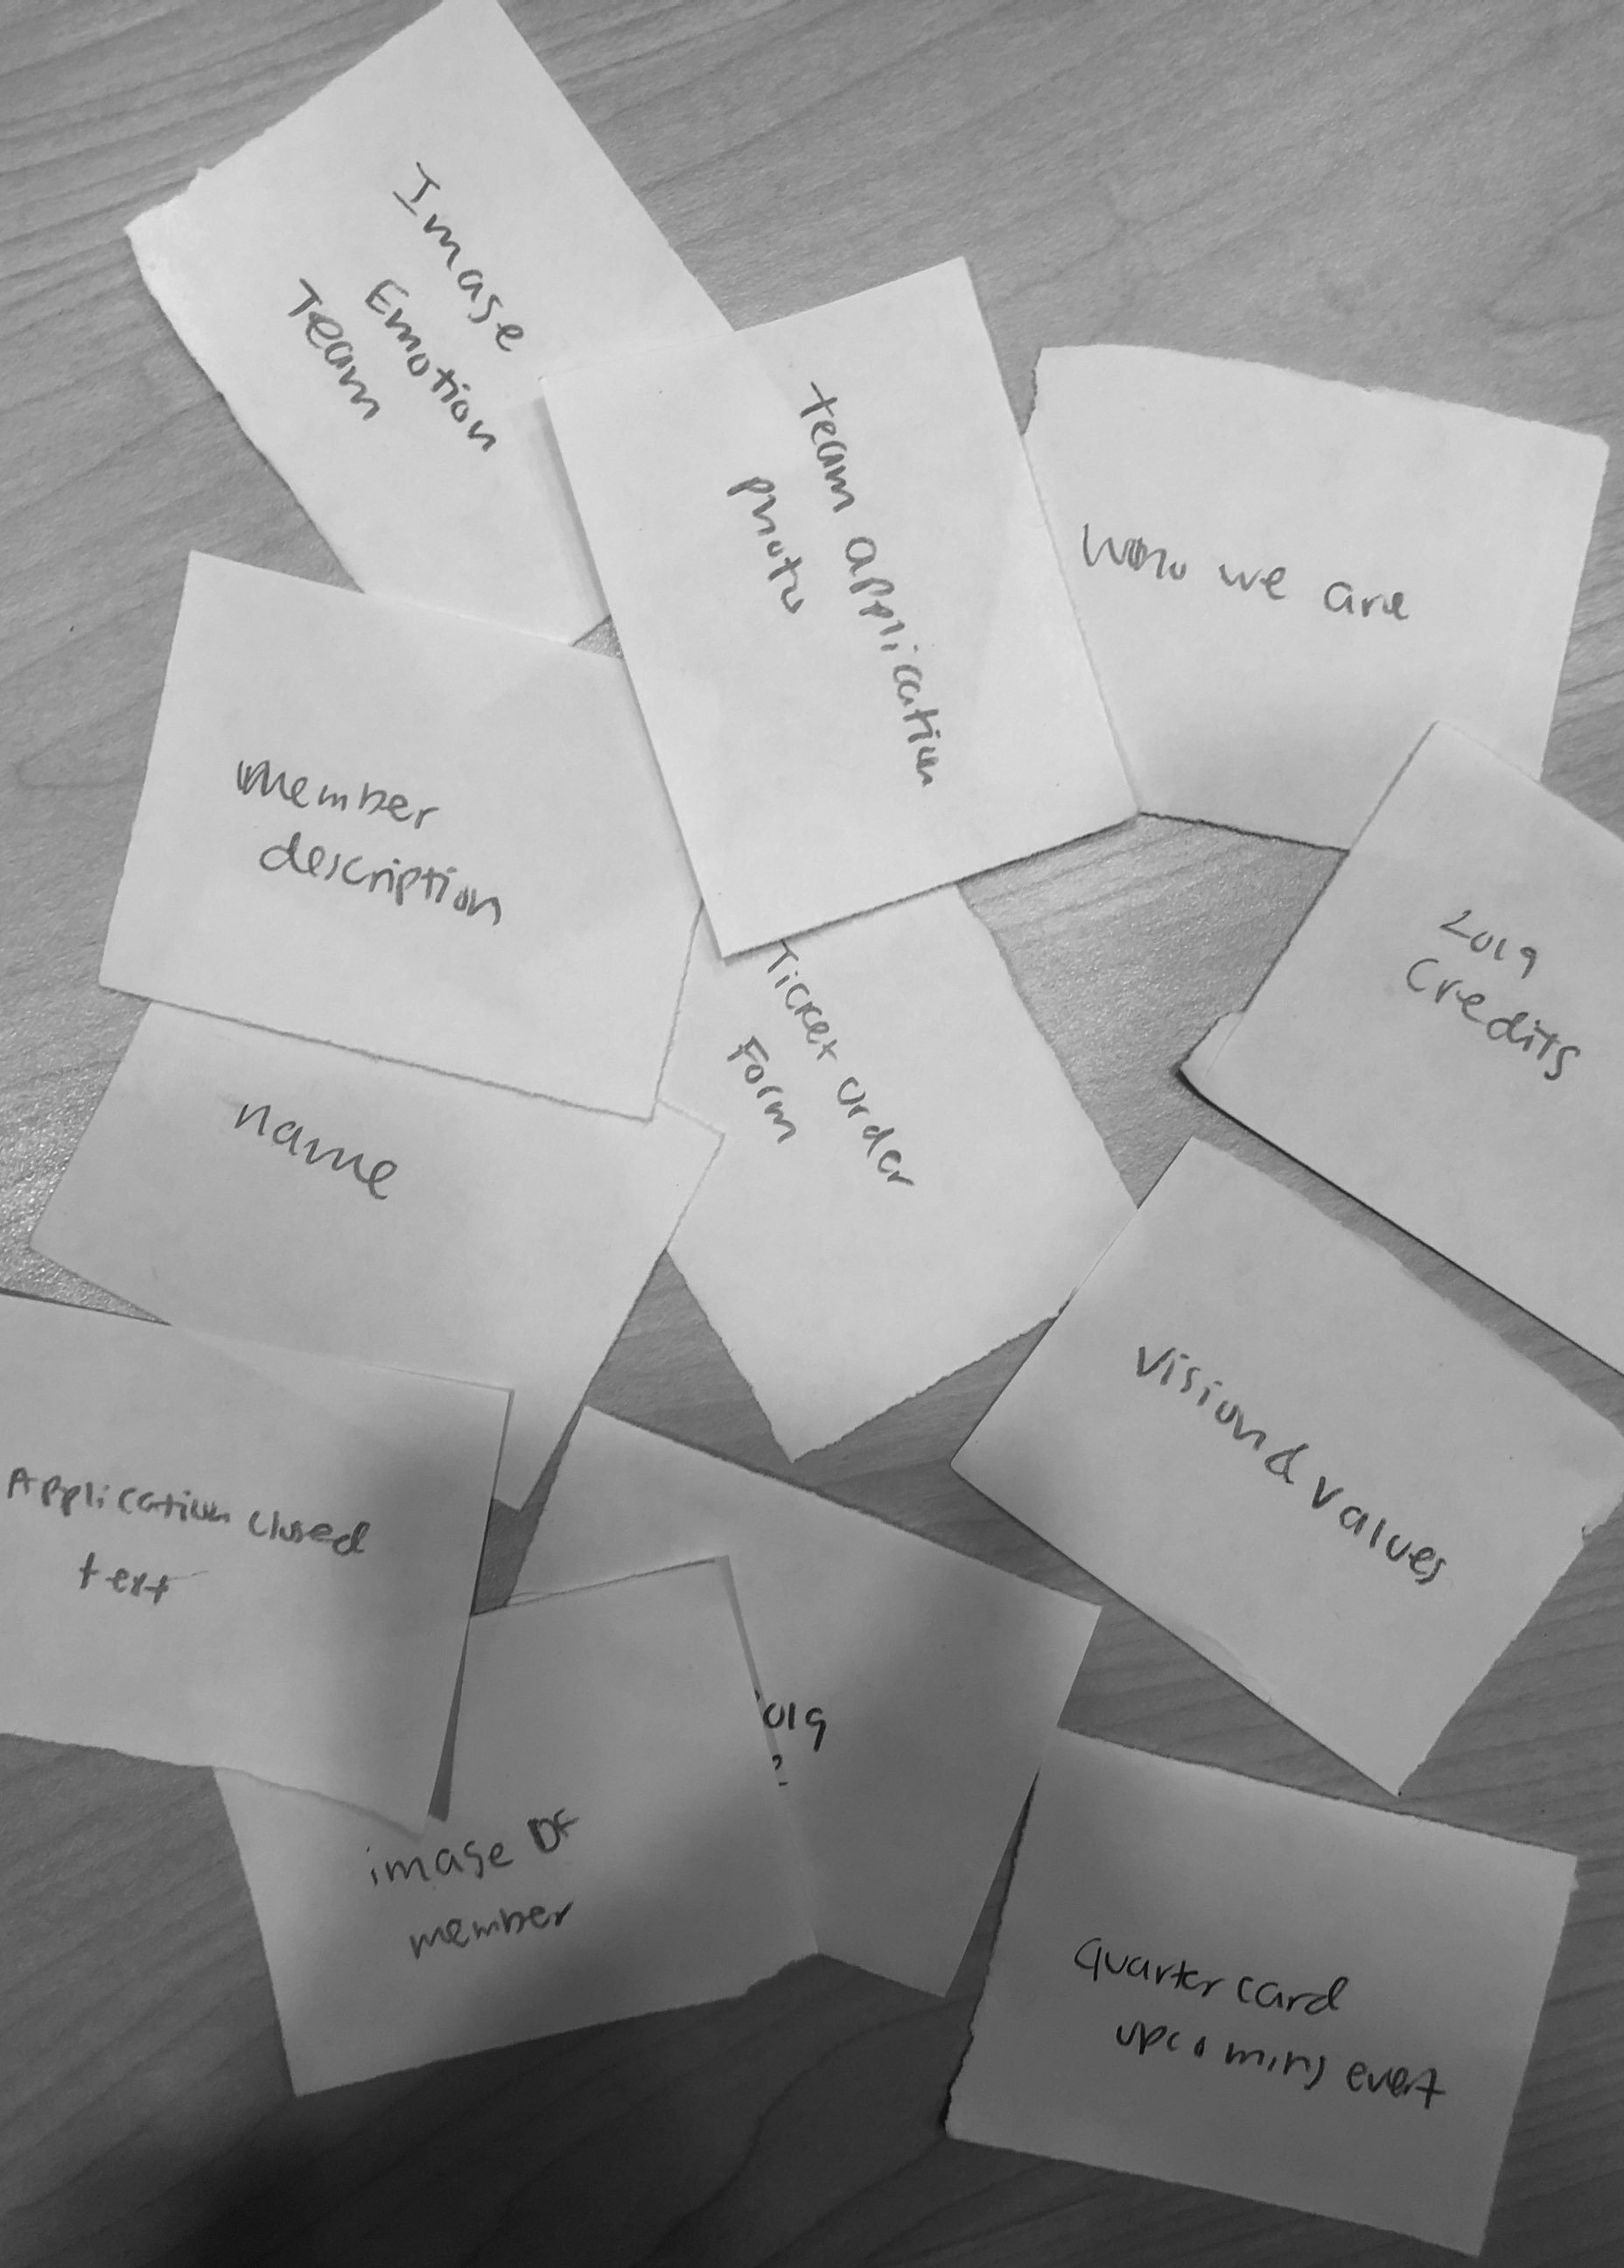 Image
Emotion
Team
team application
photo
Who we are
member
description
2019
Credits
Ticket order
Form
name
vision & values
Application closed
text
019
image OF
member
quarter card
upcoming event